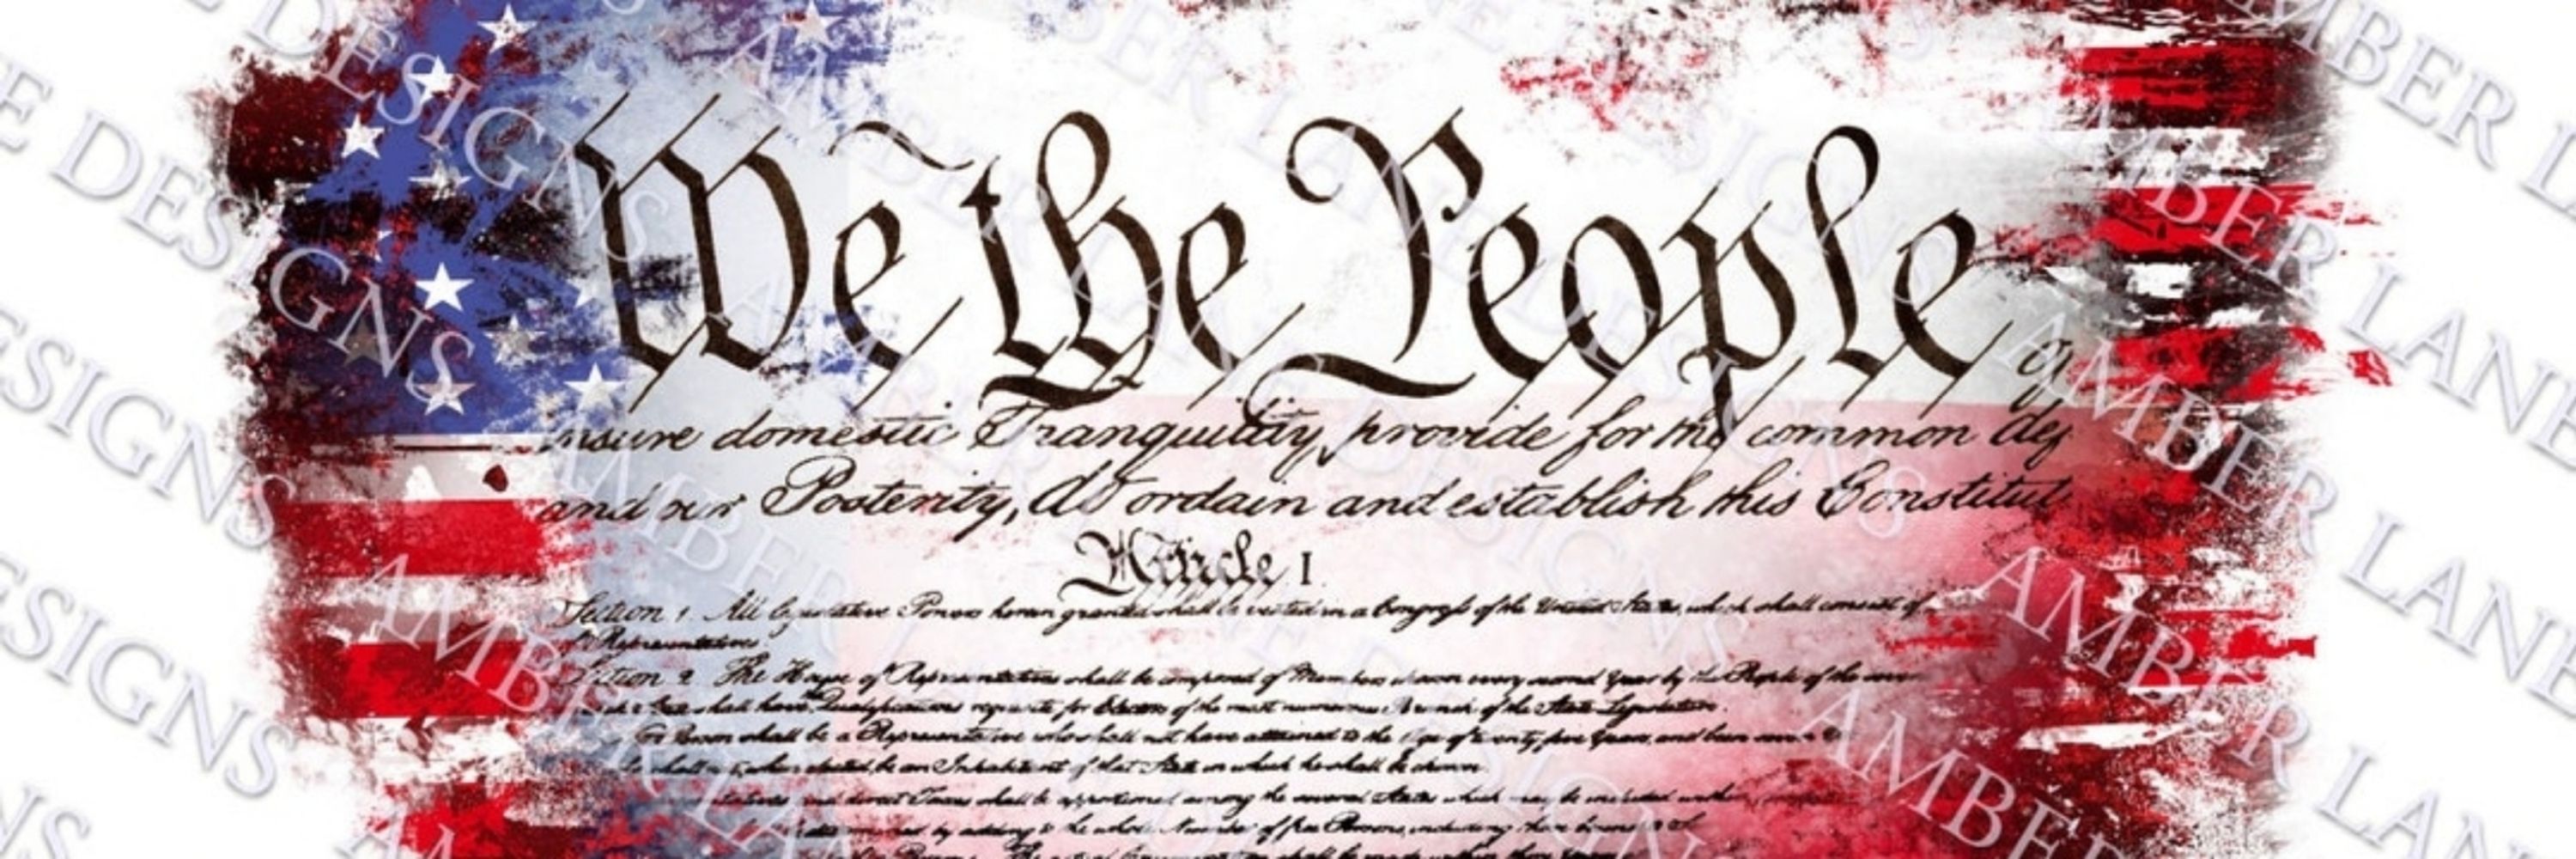 We the People of
nsure domestic Tranquility, provide for the common def
and our Posterity, do ordain and establish this Constitut
Article I.
Section 1. All legislative Powers herein granted shall be vested in a Congress of the United States, which shall consist of
of Representatives
Section 2. The House of Representatives shall be composed of Members chosen every second Year by the People of the several
State shall have the Qualifications requisite for Electors of the most numerous Branch of the State Legislature.
No Person shall be a Representative who shall not have attained to the Age of twenty five Years, and been seven
shall not, when elected, be an Inhabitant of that State in which he shall be chosen.
and direct Taxes shall be apportioned among the several States which may be included within
determined by adding to the whole Number of free Persons, including those bound to
AMBER LANE DESIGNS